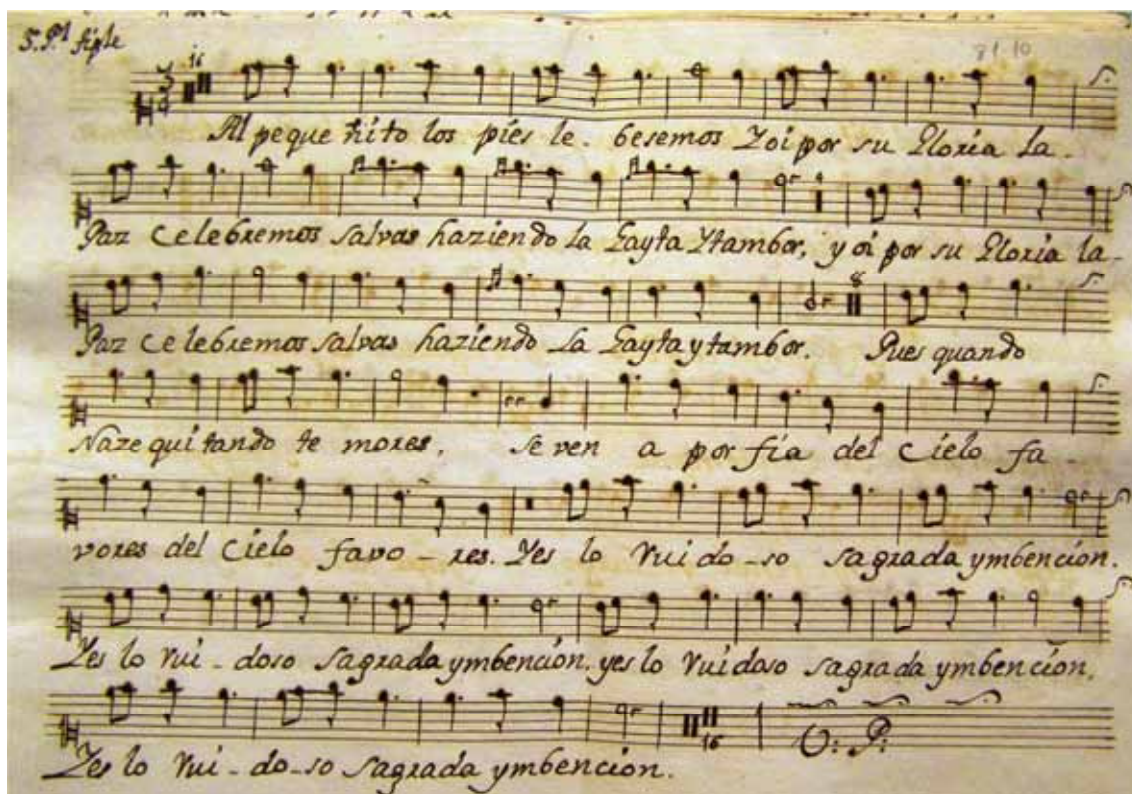 tiple
81.10
16
Al peque ñito los pies le. besemos Y oi por su Gloria la.
Paz celebremos salvas haziendo la Gayta Ytambor, y oi por su Gloria la.
8
Paz celebremos salvas haziendo la Gayta y tambor. Pues quando
Naze qui tando te mores. se ven a por fia del Cielo fa-
vores del Cielo favo-res. Yes lo Rui do-so sagrada ymbencion.
Yes lo Rui-doso sagrada ymbencion. yes lo Ruidoso sagrada ymbencion.
16
Yes lo Rui-do-so sagrada ymbencion.